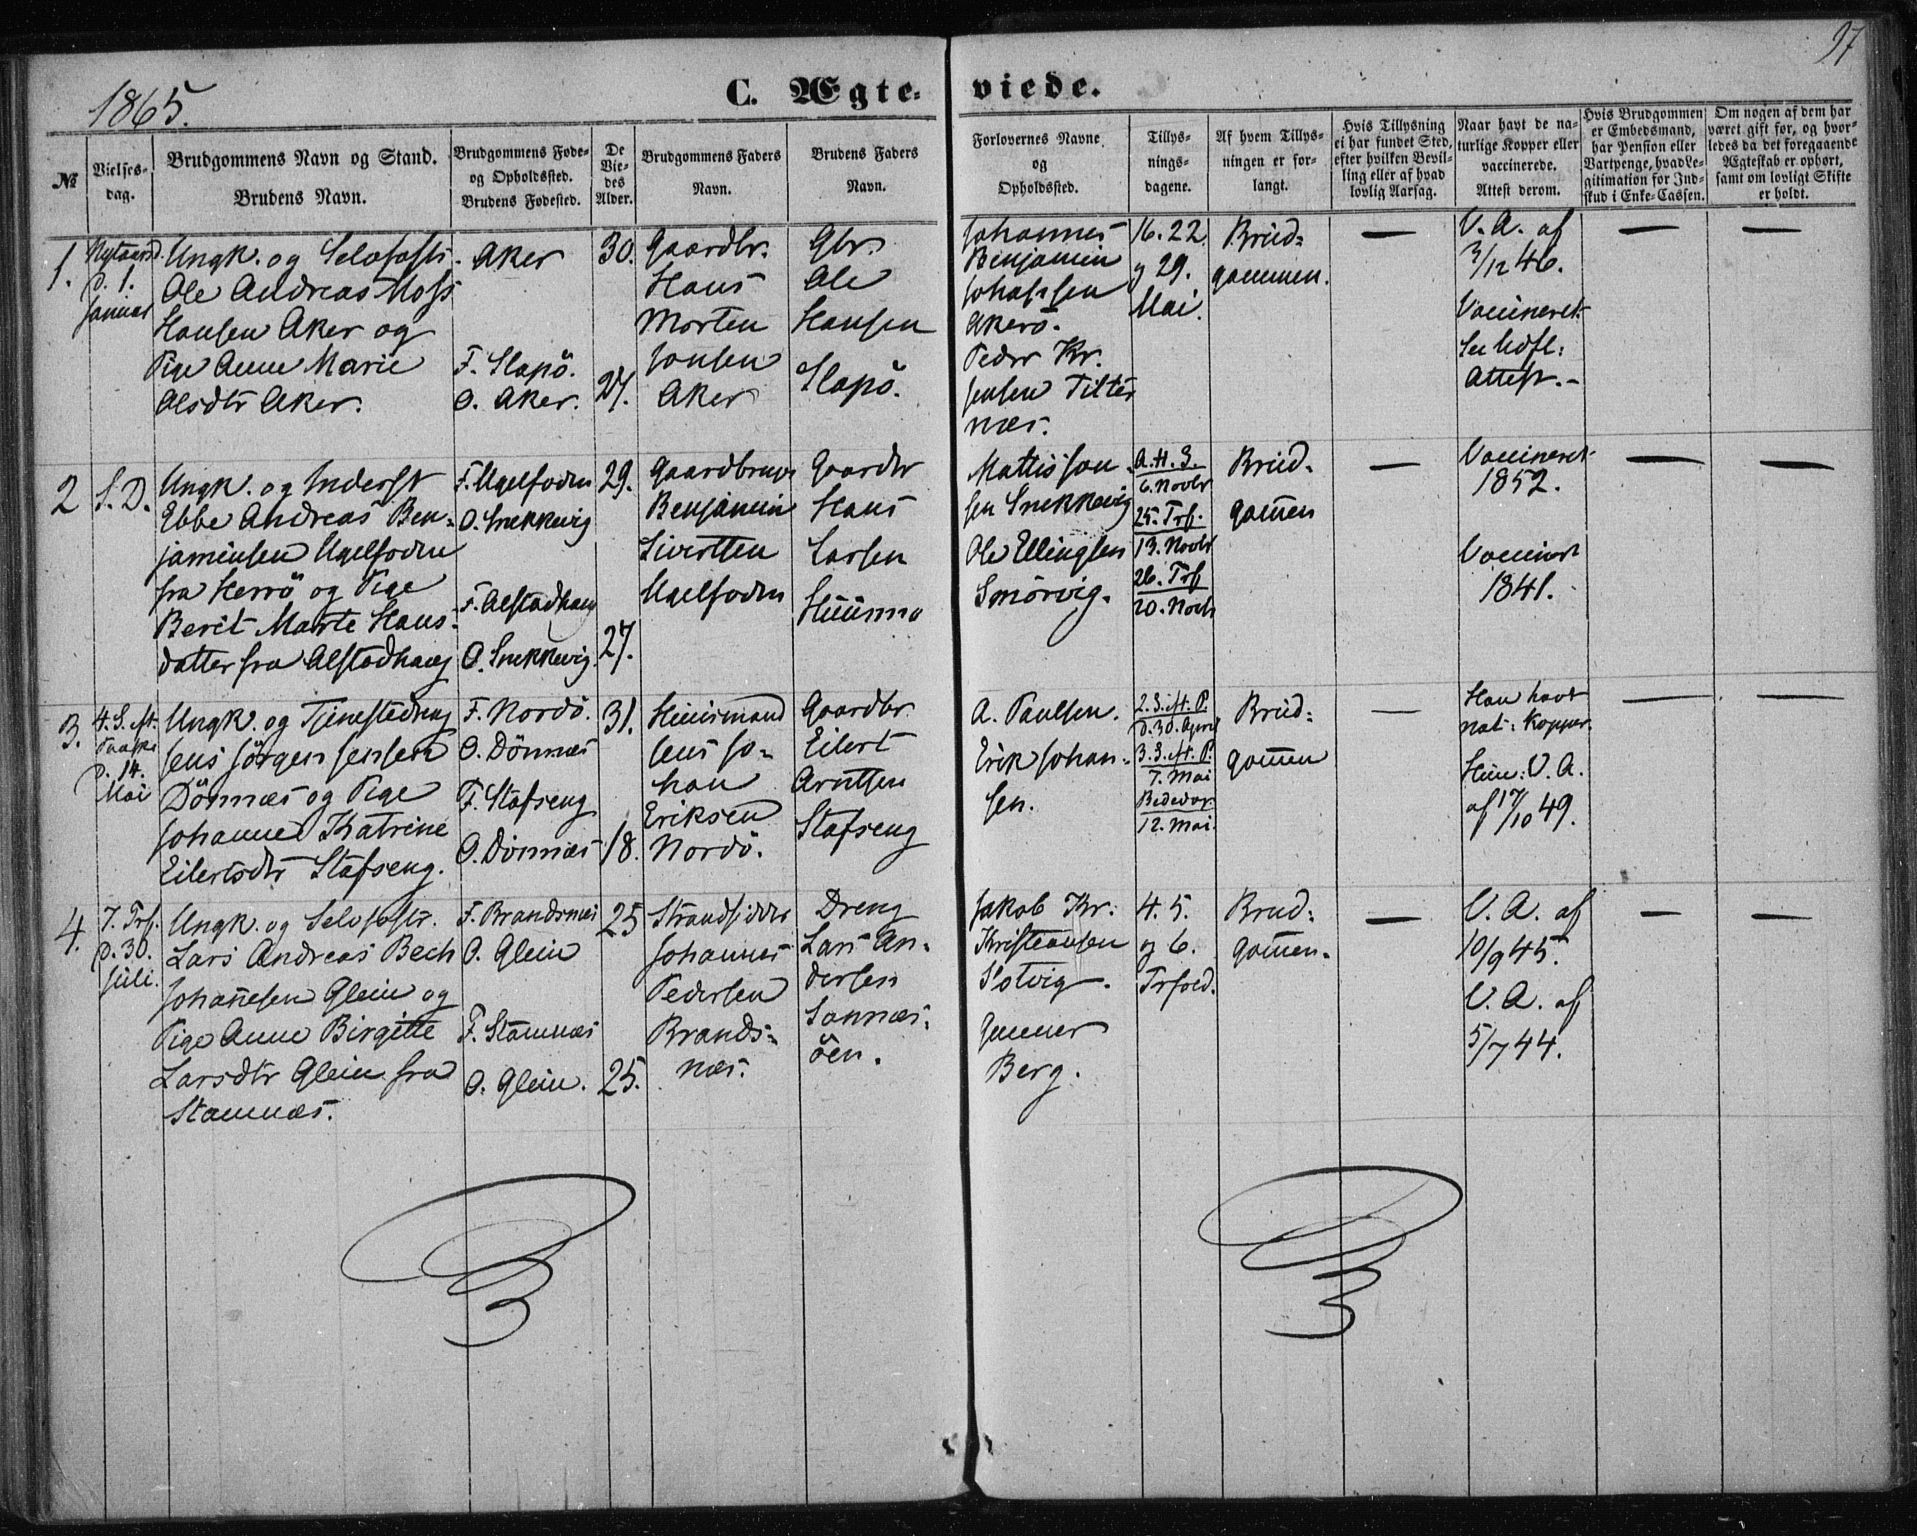 97
1865.
C. Ægte-
viede.
№
Vielses-
dag.
Brudgommens Navn og Stand.
Brudens Navn.
Brudgommens Føde-
og Opholdssted.
Brudens Fødested.
De
Vie-
des
Alder.
Brudgommens Faders
Navn.
Brudens Faders
Navn.
Forlovernes Navne
og
Opholdssted.
Tillys-
nings-
dagene.
Af hvem Tillys-
ningen er for-
langt.
Hvis Tillysning
ei har fundet Sted,
efter hvilken Bevil-
ling eller af hvad
lovlig Aarsag.
Naar havt de na-
turlige Kopper eller
vaccinerede.
Attest derom.
Hvis Brudgommen
er Embedsmand,
har Pension eller
Vartpenge, hvad Le-
gitimation for Ind-
skud i Enke-Cassen.
Om nogen af dem har
været gift før, og hvor-
ledes da det foregaaende
Ægteskab er ophørt,
samt om lovligt Skifte
er holdt.
1.
Nytaarsd.
d. 1.
Januar
Ungk. og Selvfostr.
Ole Andreas Moss
Hansen Aker og
Pige Anne Marie
Olsdtr Aker.
Aker
F. Slapö.
O. Aker.
30.
27.
Gaardbr.
Hans
Morten
Jonsen
Aker
Gbr.
Ole
Hansen
Slapö.
Johannes
Benjamin
Johansen
Akerö.
Peder Kr.
Jensen Tilter
næs.
16. 22
og 29.
Mai.
Brud-
gommen.
—
V. A. af
3/12 46.
Vaccineret
Attest. -
—
—
2
S. D.
Ungk. og Inderst
Ebbe Andreas Ben-
jaminsen Ugelfoden
fra Herrö og Pige
Berit Marte Hans-
datter fra Alstadhaug
F. Ugelfoden
O. Snekkevig
F. Alstadhaug
O. Snekkevig.
29.
27.
Gaardbruger
Benjamin
Sivertsen
Ugelfoden
Gaardbr
Hans
Larsen
Huusmo
Mattis Jon-
sen Snekkevig
Ole Ellingsen
Smörvig.
A. H. S.
6. Novbr
25. Trf.
13. Novbr
26. Trf
20. Novb
Brud-
gomen
—
Vaccineret
1852.
Vaccinert
1841.
—
—
3.
4. S. eft.
Paaske
d. 14.
Mai
Ungk. og Tjenestedreng
Jens Jörgen Jensen
Dönnæs og Pige
Johanne Katrine
Eilertsdtr Stafseng.
F. Nordö.
O. Dönnæs
F. Stafseng
O. Dönnæs
31.
18.
Huusmand
Jens Jo-
han
Eriksen
Nordö.
Gaardbr
Eilert
Arntsen
Stafseng
A. Paulsen.
Erik Johan-
sen.
2. S. eft. P.
d. 30. April
3. S. eft. P.
7. Mai
Bededag.
12. Mai.
Brud-
gomen
—
Han havt
nat: Kopper.
Hun: V. A.
af 17/10 49.
—
—
4.
7. Trf.
d. 30.
Juli.
Ungk. og Selvfostr.
Lars Andreas Bech
Johanesen Glein og
Pige Anne Birgitte
Larsdtr Glein fra
Stamnæs.
F. Brandsnæs
O. Glein
F. Stamnæs
O. Glein.
25
25.
Strandsidder
Johannes
Pedersen
Brands-
næs.
Dreng
Lars An-
dersen
Sannæs-
öen.
Jakob Kr.
Kristiansen
Solvig.
Gunner
Berg.
4. 5.
og 6.
Trfold.
Brud-
gomen.
—
V. A. af
10/9 45.
V. A. af
5/7 44.
—
—